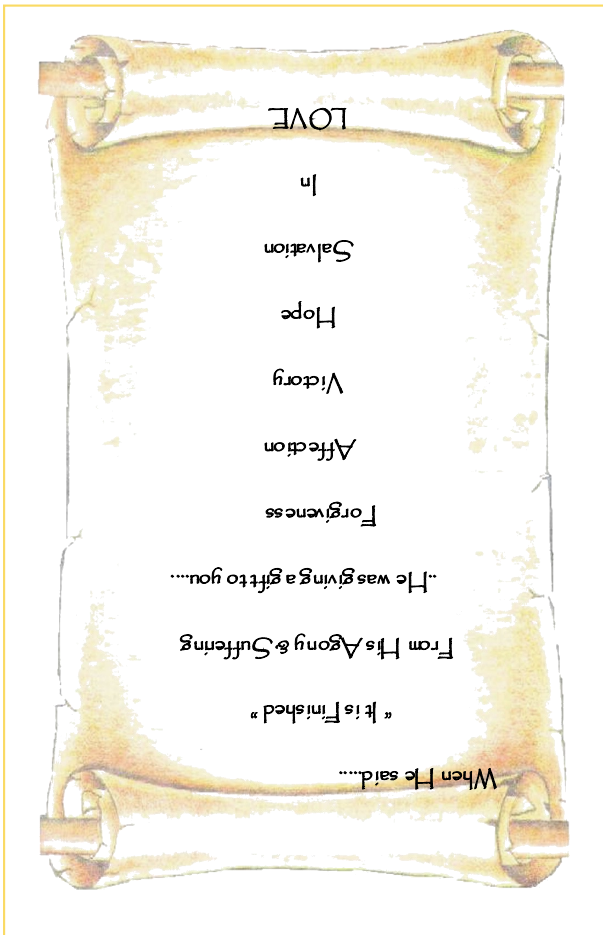 When He said.....
" It is Finished "
From His Agony & Suffering
..He was giving a gift to you.....
Forgiveness
Affection
Victory
Hope
Salvation
In
LOVE